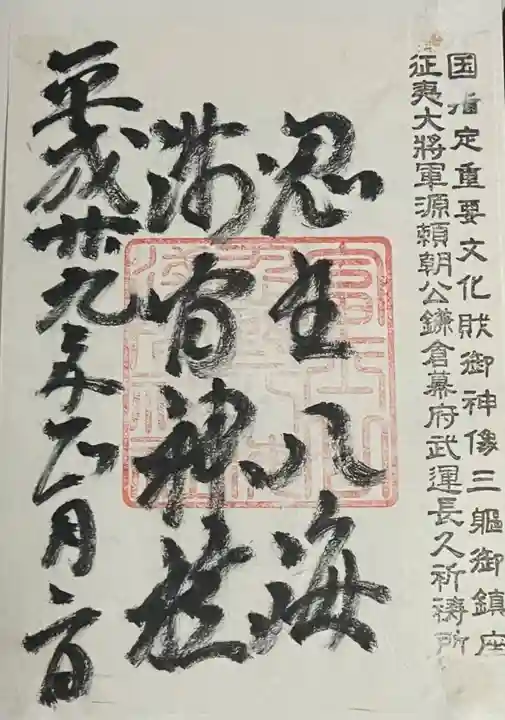 国指定重要文化財御神像三軀御鎮座
征夷大將軍源頼朝公鎌倉幕府武運長久祈祷所
忍生八海
渕宮神社
平成廿九年正月二日